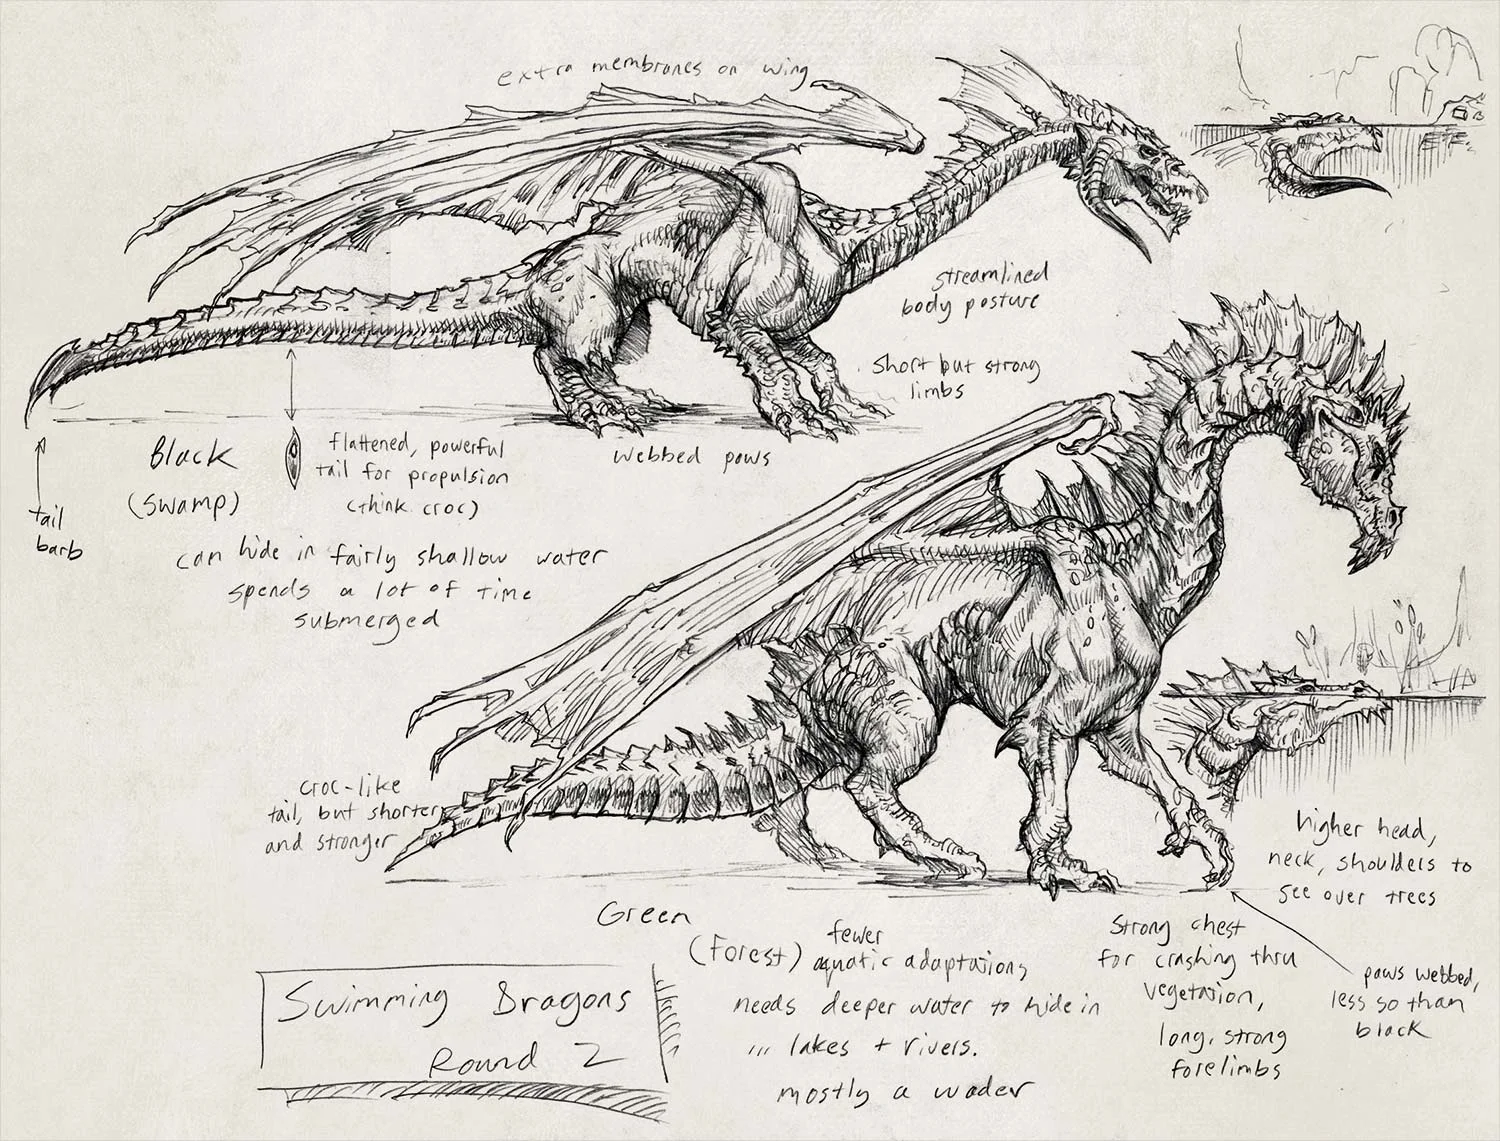 extra membranes on wing
streamlined
body posture
short but strong
limbs
webbed paws
Black
(swamp)
flattened, powerful
tail for propulsion
(think croc)
tail
barb
can hide in fairly shallow water
spends a lot of time
submerged
croc-like
tail, but shorter
and stronger
higher head,
neck, shoulders to
see over trees
Green
(Forest)
fewer
aquatic adaptations
needs deeper water to hide in
''' lakes + rivers.
mostly a wader
Strong chest
for crashing thru
vegetation,
long, strong
forelimbs
paws webbed,
less so than
black
Swimming Dragons
Round 2